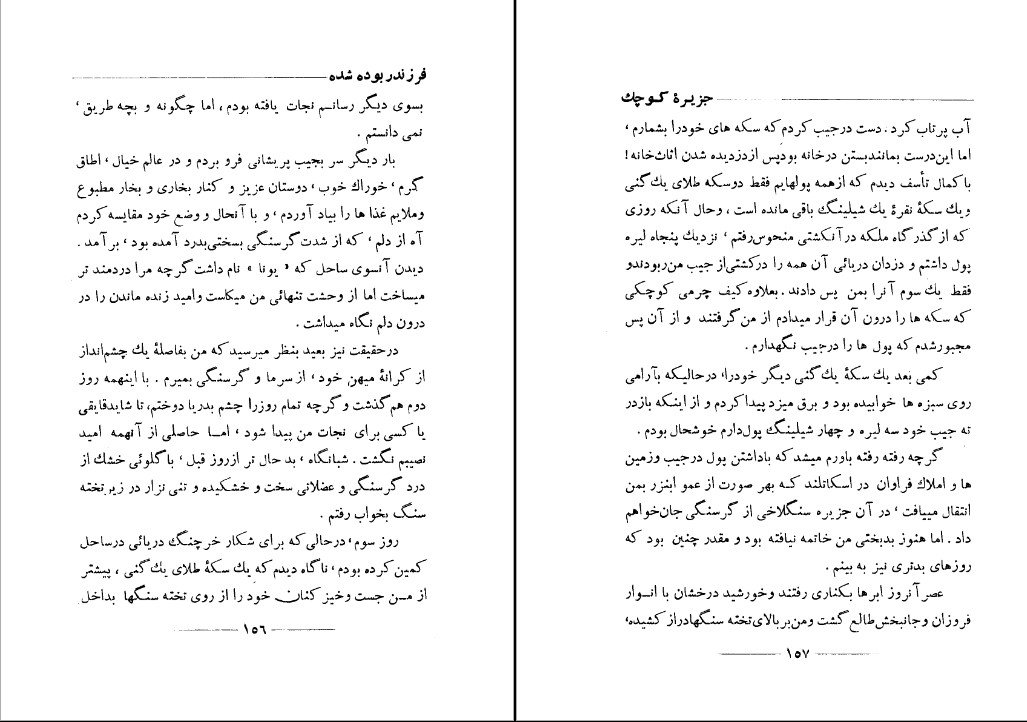 فرزند ربوده شده
بسوی دیگر رسانم نجات یافته بودم، اما چگونه و بچه طریق،
نمی دانستم .
بار دیگر سر بجیب پریشانی فرو بردم و در عالم خیال، اطاق
گرم، خوراك خوب، دوستان عزیز و کنار بخاری و بخار مطبوع
وملایم غذا ها را بیاد آوردم، و با آنحال و وضع خود مقایسه کردم
آه از دلم، که از شدت گرسنگی بسختی بدرد آمده بود، بر آمد .
دیدن آنسوی ساحل که « یونا » نام داشت گرچه مرا دردمند تر
میساخت اما از وحشت تنهائی من میکاست وامید زنده ماندن را در
درون دلم نگاه میداشت .
درحقیقت نیز بعید بنظر میرسید که من بفاصلهٔ یك چشم‌انداز
از کرانهٔ میهن خود، از سرما و گرسنگی بمیرم . با اینهمه روز
دوم هم گذشت و گرچه تمام روزرا چشم بدریا دوختم، تا شایدقایقی
یا کسی برای نجات من پیدا شود، امـا حاصلی از آنهمه امید
نصیبم نگشت . شبانگاه، بدحال تر ازروز قبل، با گلوئی خشك از
درد گرسنگی و عضلاتی سخت و خشکیده و تنی نزار در زیر تخته
سنگ بخواب رفتم .
روز سوم، درحالی که برای شکار خرچنگ دریائی درساحل
کمین کرده بودم، ناگاه دیدم که یك سکهٔ طلای یك گنی، پیشتر
از مـن جست وخیز کنان خود را از روی تخته سنگها بداخل
۱۵۶
جزیرهٔ کوچك
آب پرتاب کرد . دست درجیب کردم که سکه های خودرا بشمارم،
اما این‌درست بمانندبستن درخانه بودپس ازدزدیده شدن اثاث‌خانه!
با کمال تأسف دیدم که ازهمه پولهایم فقط دوسکه طلای یك گنی
ویك سکهٔ نقرهٔ یك شیلینگ باقی مانده است، وحال آنکه روزی
که از گذرگاه ملکه در آنکشتی منحوس‌رفتم، نزدیك پنجاه لیره
پول داشتم و دزدان دریائی آن همه را درکشتی‌از جیب من‌ربودندو
فقط یك سوم آنرا بمن پس دادند . بعلاوه کیف چرمی کوچکی
که سکه ها را درون آن قرار میدادم از من گرفتند و از آن پس
مجبورشدم که پول ها را درجیب نگهدارم .
کمی بعد یك سکهٔ یك گنی دیگر خودرا، درحالیکه بآرامی
روی سبزه ها خوابیده بود و برق میزد پیدا کردم و از اینکه بازدر
ته جیب خود سه لیره و چهار شیلینگ پول‌دارم خوشحال بودم .
گرچه رفته رفته باورم میشد که باداشتن پول درجیب وزمین
ها و املاك فراوان در اسکاتلند کـه بهر صورت از عمو ابنزر بمن
انتقال مییافت، در آن جزیره سنگلاخی از گرسنگی جان‌خواهم
داد . اما هنوز بدبختی من خاتمه نیافته بود و مقدر چنین بود که
روزهای بدتری نیز به بینم .
عصر آنروز ابرها بکناری رفتند وخورشید درخشان با انـوار
فروزان وجانبخش‌طالع گشت ومن‌بر بالای‌تخته سنگهادراز کشیده،
۱۵۷